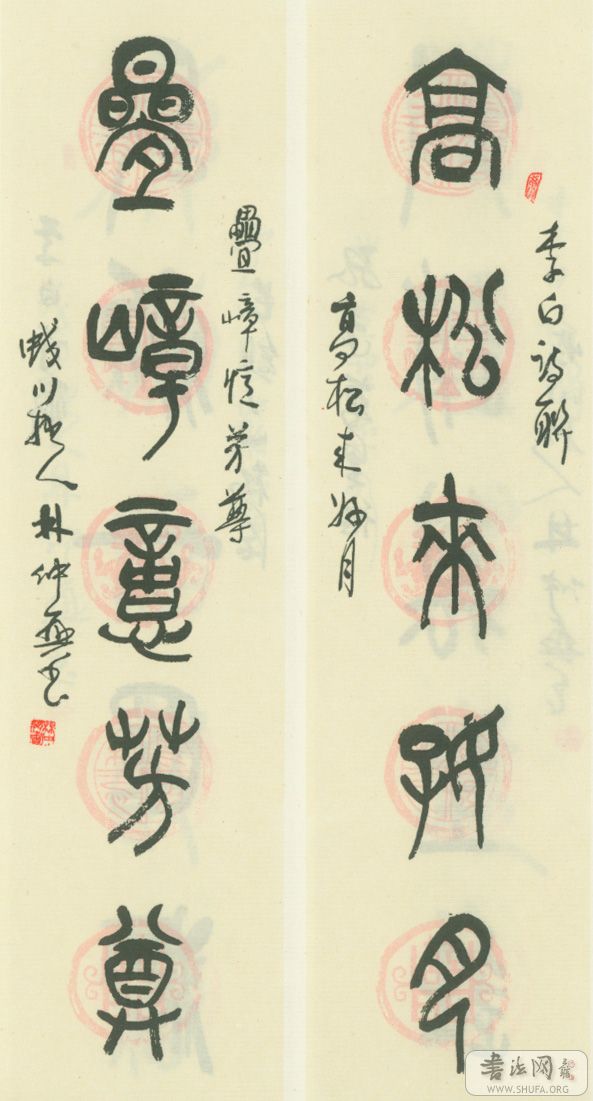 高松来好月
李白詩聯
高松来好月
疊嶂憶芳尊
疊嶂憶芳尊
林仲興书
书法网
WWW.SHUFA.ORG